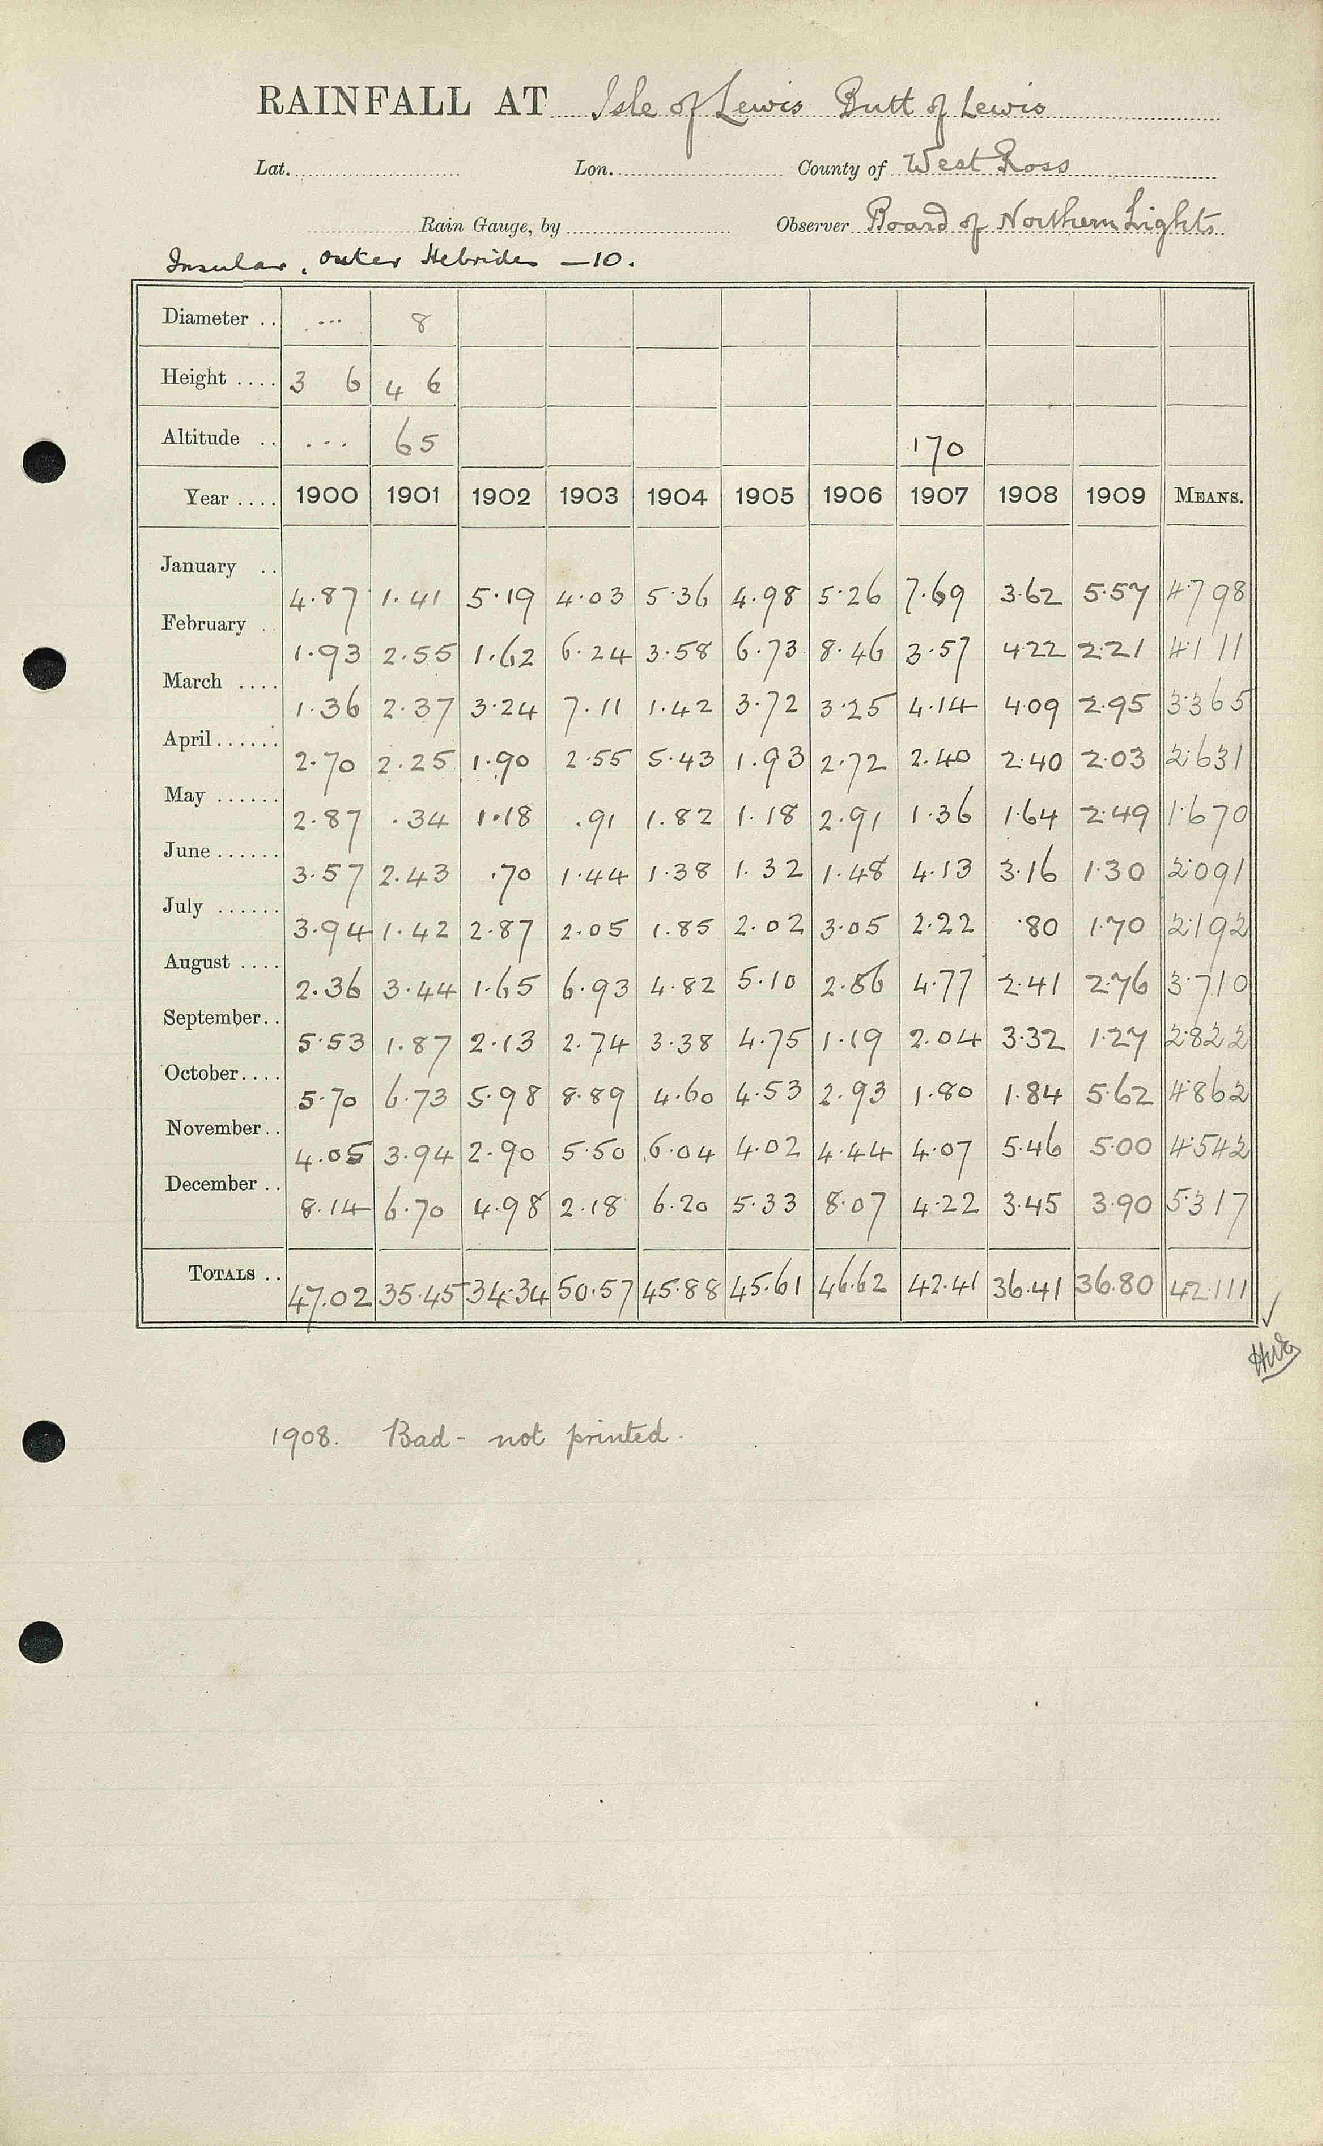 RAINFALL AT Isle of Lewis Butt of Lewis
Lat. Lon. County of West Ross
Rain Gauge, by Observer Board of Northern Lights
Insular, Outer Hebrides —10.
Diameter .. ... 8
Height .... 3 6 4 6
Altitude .. ... 65 170
Year .... 1900 1901 1902 1903 1904 1905 1906 1907 1908 1909 MEANS.
January .. 4.87 1.41 5.19 4.03 5.36 4.98 5.26 7.69 3.62 5.57 4.798
February . 1.93 2.55 1.62 6.24 3.58 6.73 8.46 3.57 4.22 2.21 4.111
March .... 1.36 2.37 3.24 7.11 1.42 3.72 3.25 4.14 4.09 2.95 3.365
April...... 2.70 2.25 1.90 2.55 5.43 1.93 2.72 2.40 2.40 2.03 2.631
May ...... 2.87 .34 1.18 .91 1.82 1.18 2.91 1.36 1.64 2.49 1.670
June ...... 3.57 2.43 .70 1.44 1.38 1.32 1.48 4.13 3.16 1.30 2.091
July ...... 3.94 1.42 2.87 2.05 1.85 2.02 3.05 2.22 .80 1.70 2.192
August .... 2.36 3.44 1.65 6.93 4.82 5.10 2.86 4.77 2.41 2.76 3.710
September.. 5.53 1.87 2.13 2.74 3.38 4.75 1.19 2.04 3.32 1.27 2.822
October.... 5.70 6.73 5.98 8.89 4.60 4.53 2.93 1.80 1.84 5.62 4.862
November.. 4.05 3.94 2.90 5.50 6.04 4.02 4.44 4.07 5.46 5.00 4.542
December .. 8.14 6.70 4.98 2.18 6.20 5.33 8.07 4.22 3.45 3.90 5.317
TOTALS .. 47.02 35.45 34.34 50.57 45.88 45.61 46.62 42.41 36.41 36.80 42.111
1908. Bad - not printed.